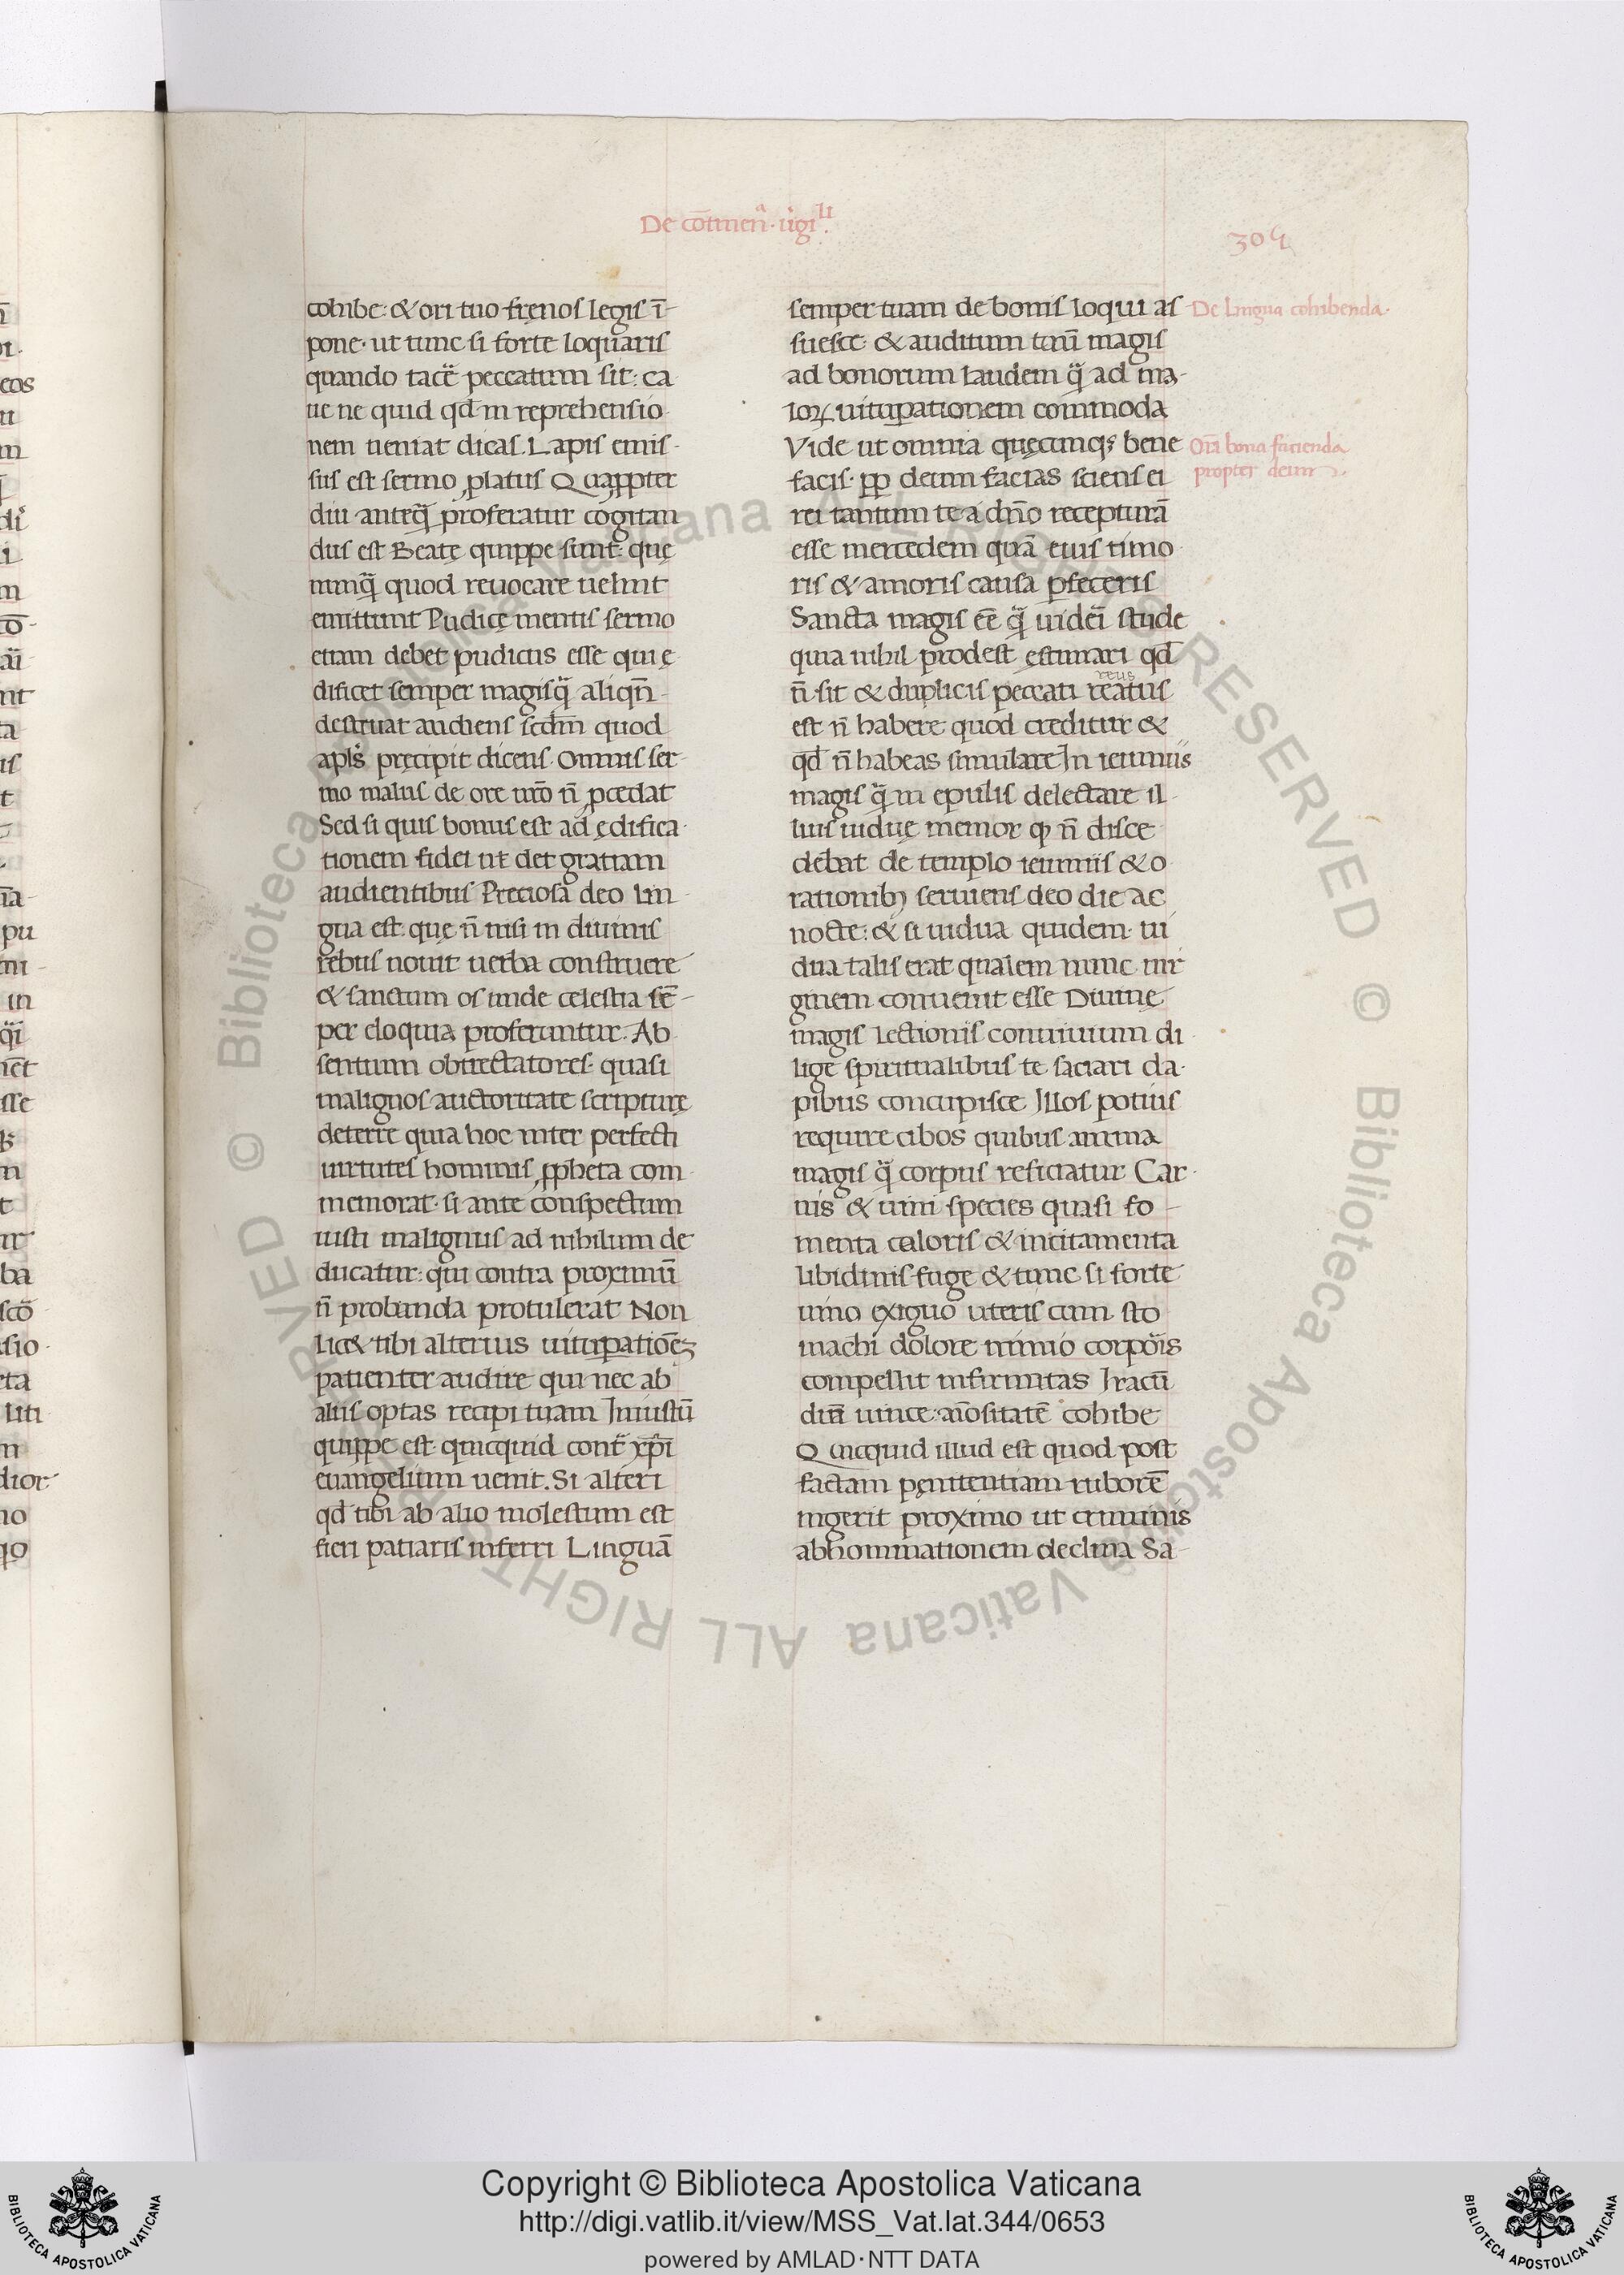 De cōtinen̄ᵃ. v̇giˡⁱ.
304
cohibe: & ori tuo frenos legis ī-
pone. ut tunc si forte loquaris
quando tacē peccatum sit: ca
ue ne quid qđ in reprehensio
nem ueniat dicas. Lapis emis-
sus est sermo ꝓlatus Quaꝓpter
diu anteq̄ proferatur cogitan
dus est Beatę quippe sunt: quę
nunq̄ quod reuocare uelint
emittunt Pudicę mentis sermo
etiam debet pudicus esse qui ę
dificet semper magisq̄ aliqn̄-
destruat audiens scđm quod
apl̄s pręcipit dicens. Omnis ser-
mo malus de ore uro n̄ ꝓcedat
Sed si quis bonus est ad ędifica-
tionem fidei ut det gratiam
audientibus Preciosa deo lin
gua est. quę n̄ nisi in diuinis
rebus nouit uerba construere
& sanctum os unde celestia sē-
per eloquia proferuntur. Ab
sentium obtrectatores. quasi
malignos auctoritate scripturę
deterre quia hoc inter perfecti
uirtutes hominis ꝓpheta com
memorat. si ante conspectum
iusti malignus ad nihilum de
ducatur: qui contra proximū
n̄ probanda protulerat Non
lic& tibi alterius uituꝑationeʒ
patienter audire qui nec ab
aliis optas recipi tuam Iniustū
quippe est. quicquid contᵃ xp̄i
euangelium uenit. Si alteri
qđ tibi ab alio molestum est
fieri patiaris inferri Linguā
semper tuam de bonis loqui as
suesce: & auditum tuū magis
ad bonorum laudem q̄ ad ma-
loꝝ uituꝑationem commoda
Vide ut omnia quęcunqꝫ bene
facis. ꝓp deum facias sciens ei
rei tantum te a dn̄o recepturā
esse mercedem quā eius timo
ris & amoris causa ꝑfeceris
Sancta magis eē q̄ uideri stude
quia nihil prodest ęstimari qđ
reus
n̄ sit & duplicis peccati reatus
est n̄ habere quod creditur &
qđ n̄ habeas simulare In ieiuniis
magis q̄ in epulis delectare il-
lius uiduę memor ꝙ n̄ disce
debat de templo ieiuniis & o
rationibꝫ seruiens deo die ac
nocte: & si uidua quidem ui
dua talis erat qualem nunc uir
ginem conuenit esse Diuinę
magis lectionis conuiuium di
lige spiritualibus te saciari da-
pibus concupisce Illos potius
require cibos quibus anima
magis q̄ corpus reficiatur Car-
nis & uini species quasi fo-
menta caloris & incitamenta
libidinis fuge & tunc si forte
uino exiguo uteris cum sto
machi dolore nimio corporis
compellit infirmitas Iracū
diā uince: aīositatē cohibe
Quicquid illud est quod post
factam penitentiam ruborē
ingerit proximo ut criminis
abhominationem declina Sa-
De lingua cohibenda.
Oīa bona facienda
propter deum.
Copyright © Biblioteca Apostolica Vaticana
http://digi.vatlib.it/view/MSS_Vat.lat.344/0653
powered by AMLAD·NTT DATA
BIBLIOTECA APOSTOLICA VATICANA
BIBLIOTECA APOSTOLICA VATICANA